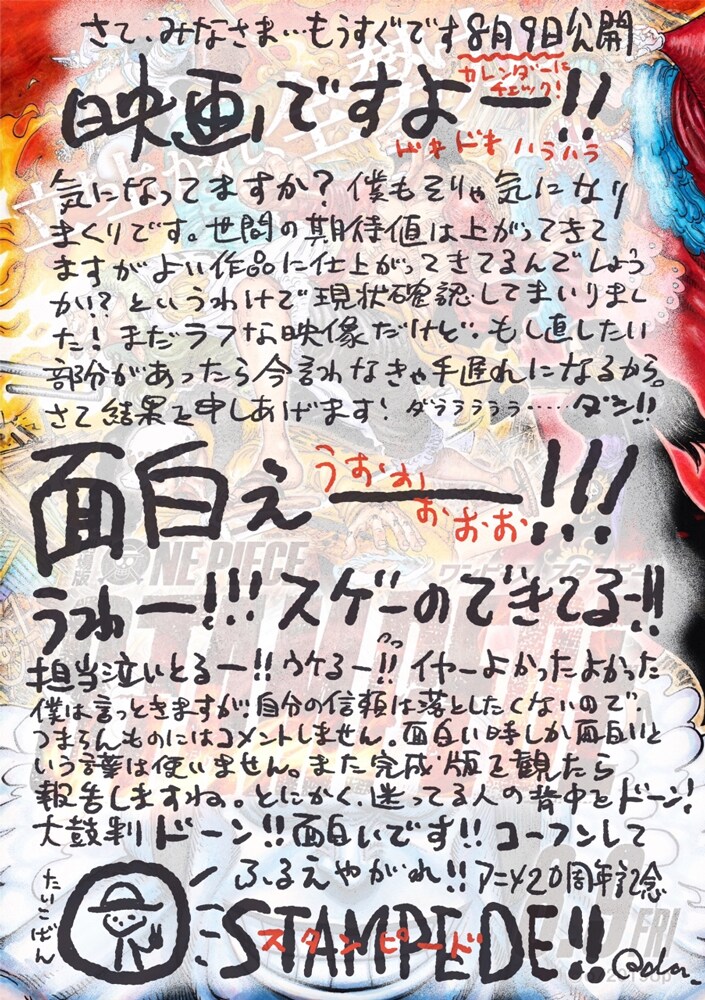 さて、みなさま…もうすぐです8月9日公開
カレンダーに
チェック!
映画ですよー!!
ドキドキ ハラハラ
気になってますか?僕もそりゃ気になり
まくりです。世間の期待値は上がってきて
ますがよい作品に仕上がってきてるんでしょう
か!?というわけで現状確認してまいりまし
た!まだラフな映像だけど、もし直したい
部分があったら今言わなきゃ手遅れになるから。
さて結果を申しあげます!ダララララララ……ダン!!
面白えーー!!!
うおおお
おおお
うわー!!!スゲーのできてる!!!
担当泣いとるー!!ウケるー!!イヤーよかったよかった
僕は言っときますが、自分の信頼は落としたくないので、
つまらんものにはコメントしません。面白い時しか面白いと
いう言葉は使いません。また完成版を観たら
報告しますね。とにかく、迷ってる人の背中をドーン!
太鼓判ドーン!!面白いです!!コーフンして
ふるえやがれ!!アニメ20周年記念
たいこばん
STAMPEDE!!
スタンピード
ONE PIECE
FRI